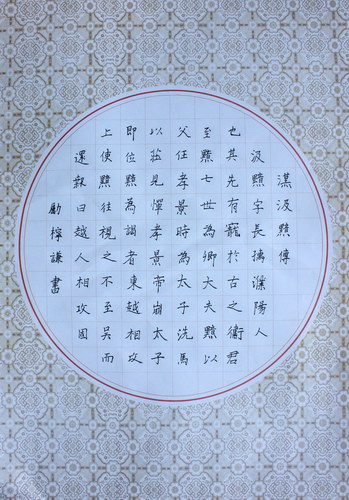 漢汲黯傳
汲黯字長孺濮陽人
也其先有寵於古之衛君
至黯七世為卿大夫黯以
父任孝景時為太子洗馬
以莊見憚孝景帝崩太子
即位黯為謁者東越相攻
上使黯往視之不至吳而
還報曰越人相攻固
勵檸謙書